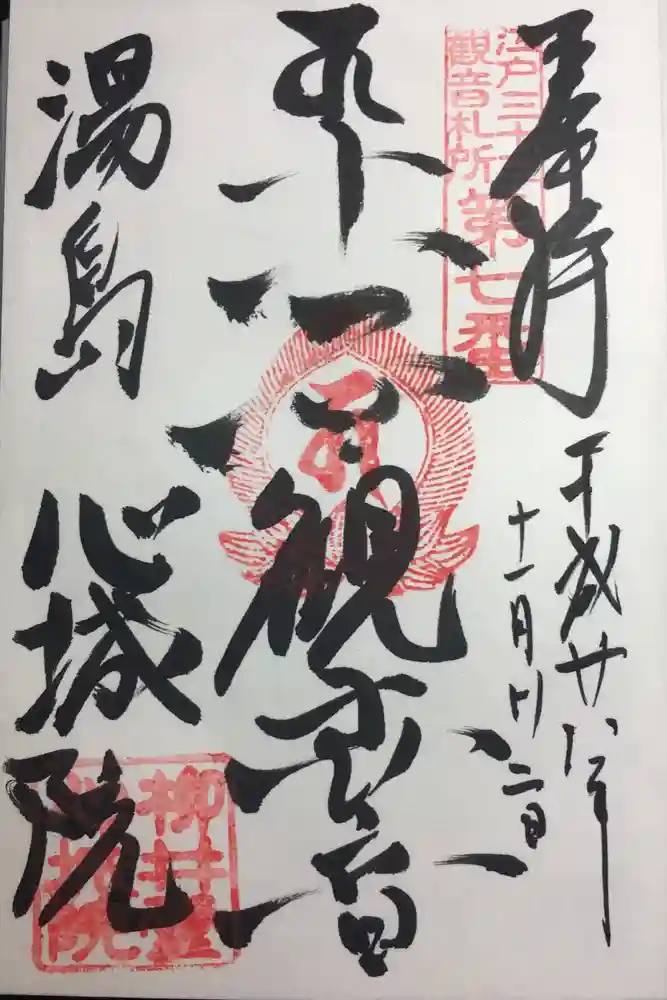 奉拝
江戸三十三
観音札所
第七番
平成廿八年
十一月廿二日
観世音
湯島
心城院
柳井堂
心城院